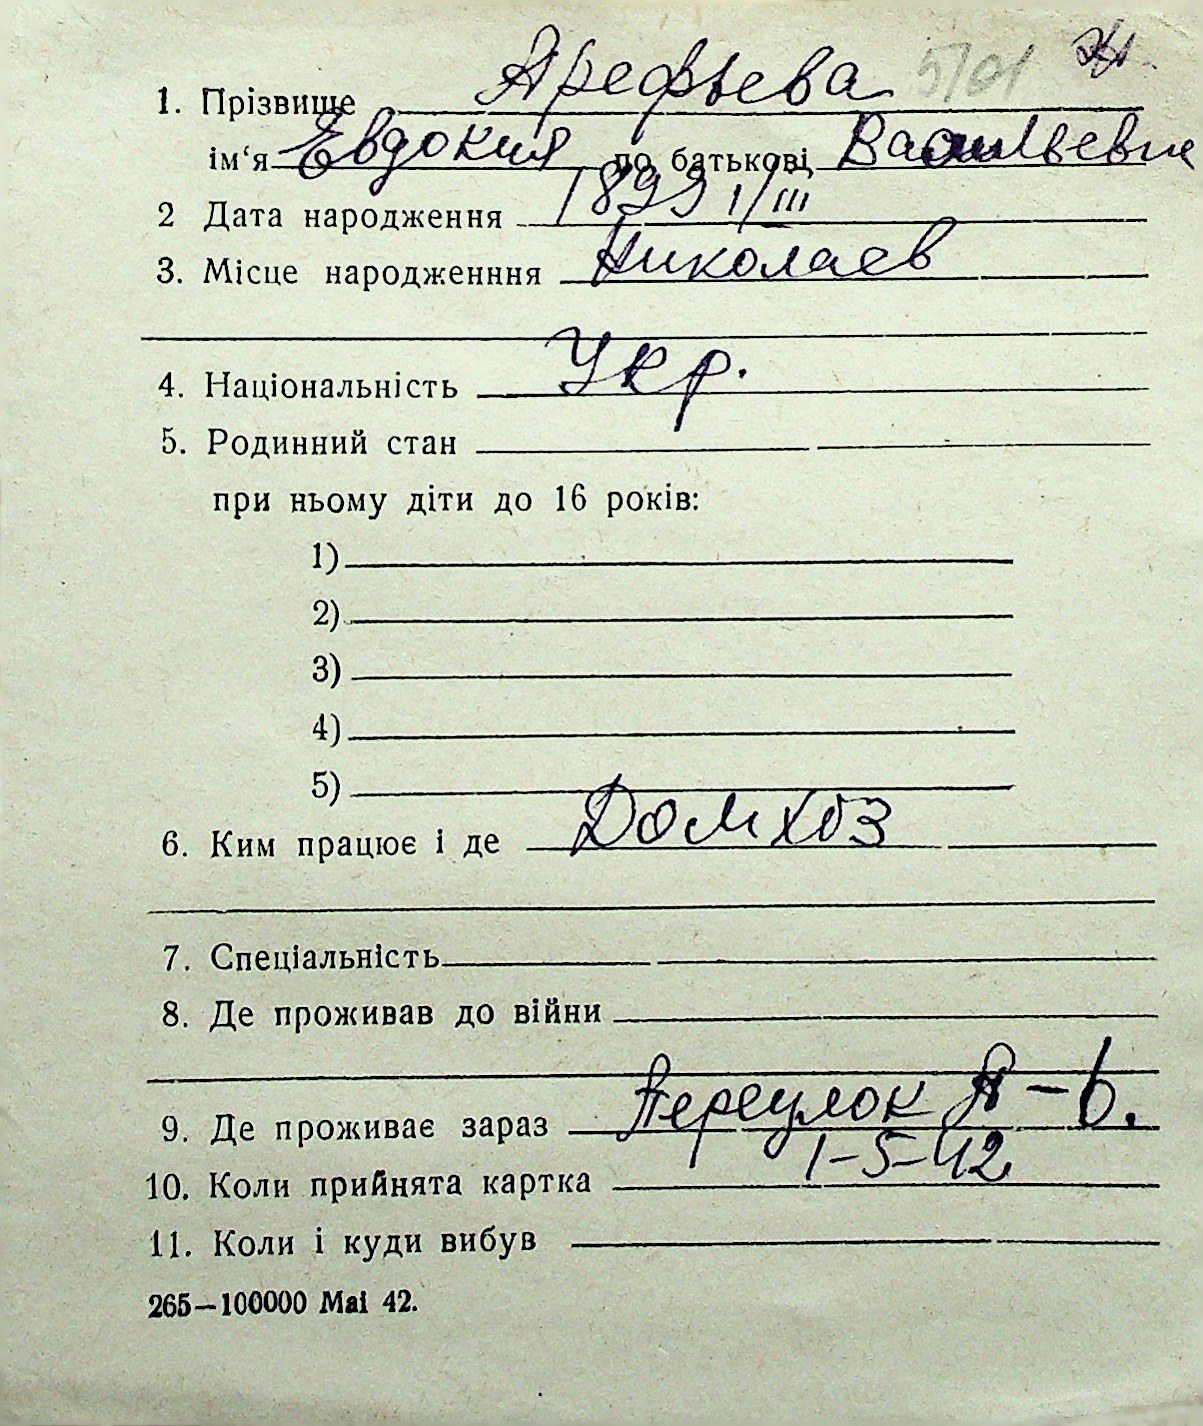 5701
1. Прізвище Арефьева
ім‘я Евдокия по батькові Васильевна
2 Дата народження 1899 I/III
3. Місце народженння Николаев
4. Національність Укр.
5. Родинний стан
при ньому діти до 16 років:
1)
2)
3)
4)
5)
6. Ким працює і де Домхоз
7. Спеціальність
8. Де проживав до війни
9. Де проживає зараз Переулок А-6.
10. Коли прийнята картка 1-5-42
11. Коли і куди вибув
265—100000 Mai 42.